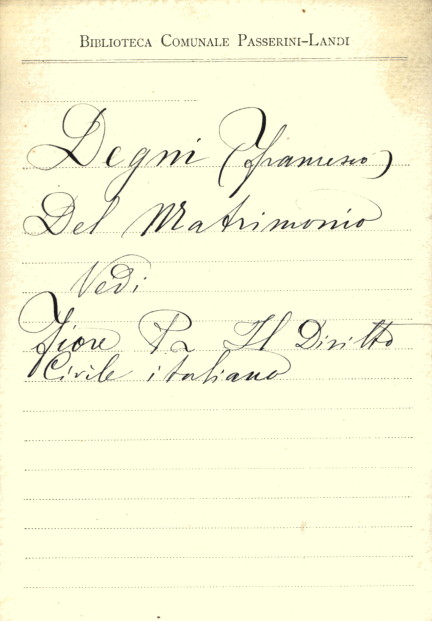 BIBLIOTECA COMUNALE PASSERINI-LANDI
Degni (Francesco)
Del Matrimonio
Vedi
Fiore Pa Il Diritto
Civile italiano